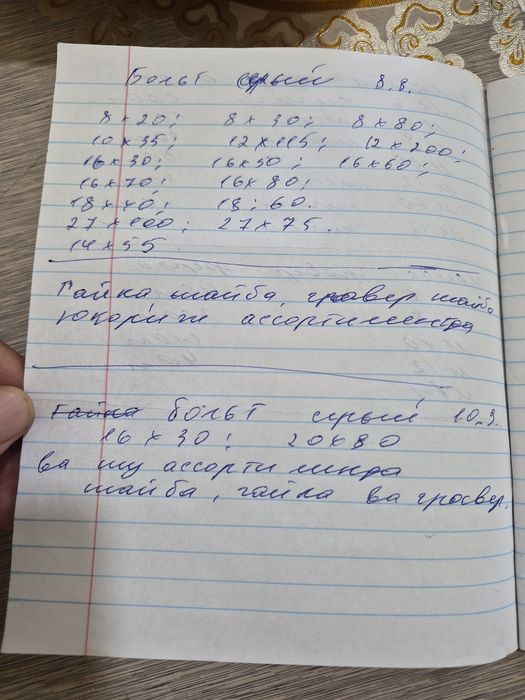 Болт серый 8.8.
8×20; 8×30; 8×80;
10×35; 12×115; 12×200;
16×30; 16×50; 16×60;
16×70; 16×80;
18×40; 18:60.
27×100; 27×75.
14×55.
Гайка шайба, гровер шайба
юкориги ассортиментда
гайка болт серый 10.9.
16×30; 20×80
ва шу ассортиментда
шайба, гайка ва гровер.